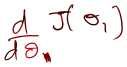 d/dθ₁ J(θ₁)